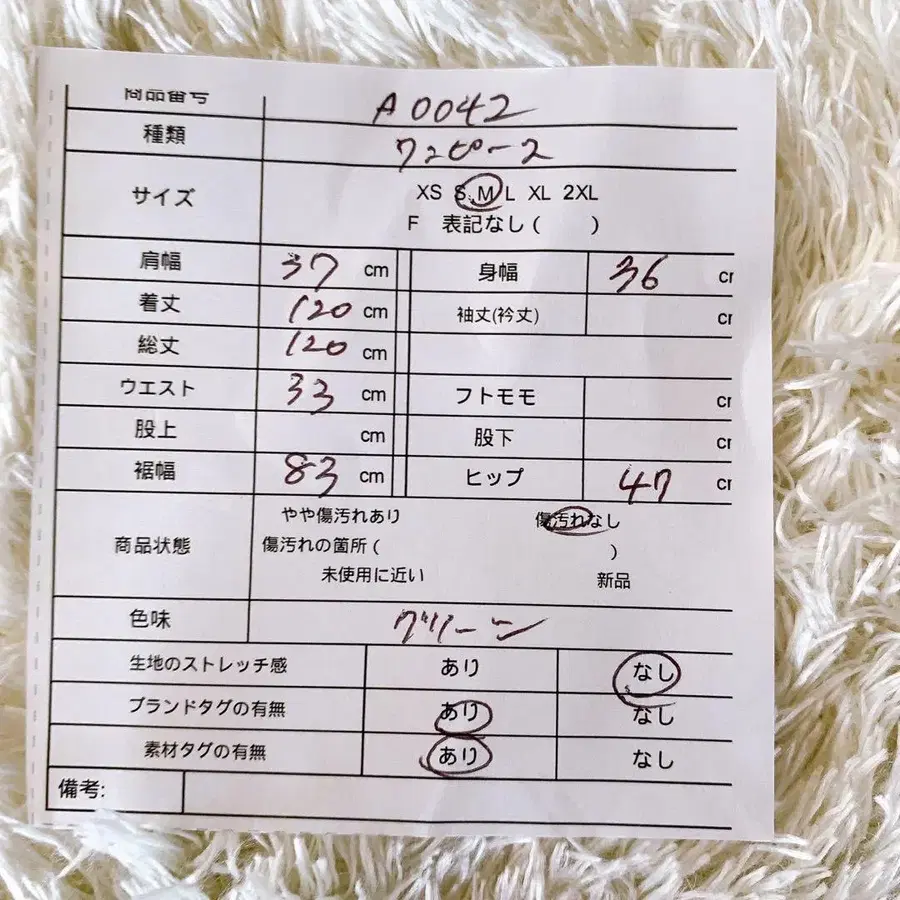 商品番号 A0042
種類 ワンピース
サイズ XS S M L XL 2XL
F 表記なし( )
肩幅 37 cm 身幅 36 cm
着丈 120 cm 袖丈(裄丈) cm
総丈 120 cm
ウエスト 33 cm フトモモ cm
股上 cm 股下 cm
裾幅 83 cm ヒップ 47 cm
やや傷汚れあり 傷汚れなし
商品状態 傷汚れの箇所( )
未使用に近い 新品
色味 グリーン
生地のストレッチ感 あり なし
ブランドタグの有無 あり なし
素材タグの有無 あり なし
備考: